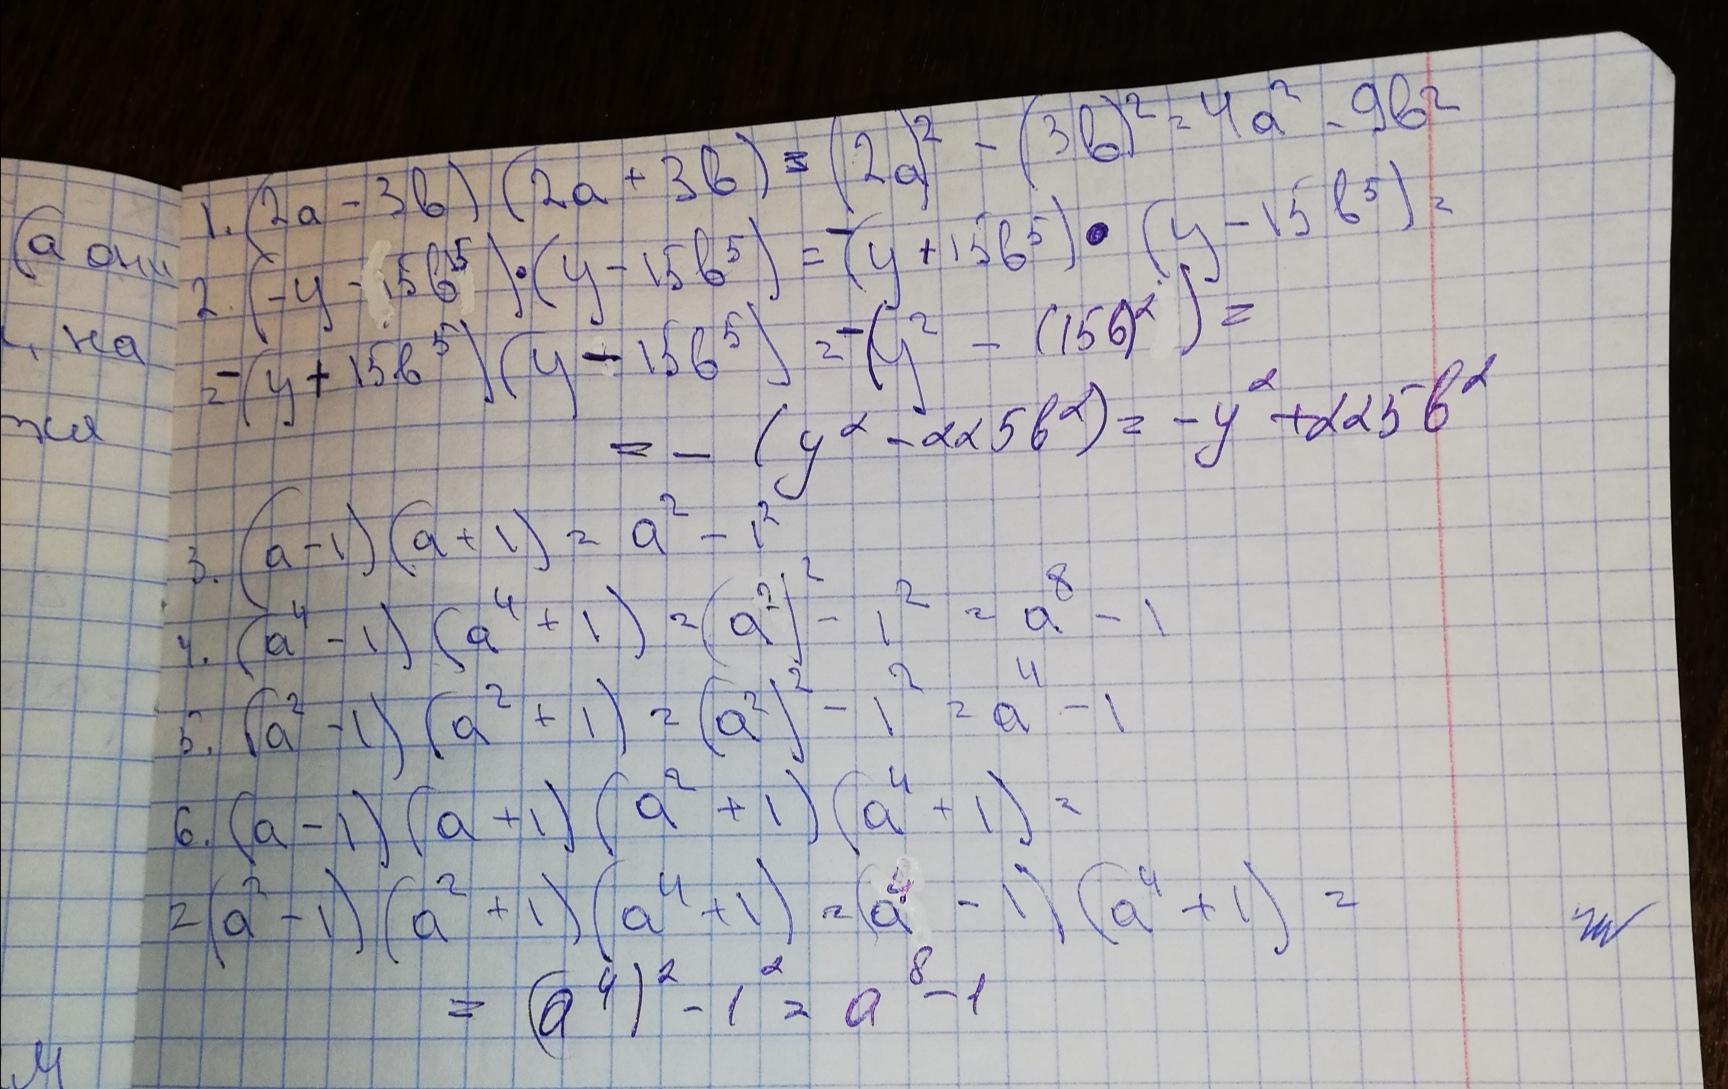 1. (2a - 3b) (2a + 3b) = (2a)² - (3b)² = 4a² - 9b²
2. (-y - 15b⁵)·(y - 15b⁵) = -(y + 15b⁵)·(y - 15b⁵) =
= -(y + 15b⁵)(y - 15b⁵) = -(y² - (15b)²) =
= - (y² - 225b²) = -y² + 225b²
3. (a - 1)(a + 1) = a² - 1²
4. (a⁴ - 1)(a⁴ + 1) = (a²)² - 1² = a⁸ - 1
5. (a² - 1)(a² + 1) = (a²)² - 1² = a⁴ - 1
6. (a - 1)(a + 1)(a² + 1)(a⁴ + 1) =
= (a² - 1)(a² + 1)(a⁴ + 1) = (a⁴ - 1)(a⁴ + 1) =
= (a⁴)² - 1² = a⁸ - 1
(а они
на